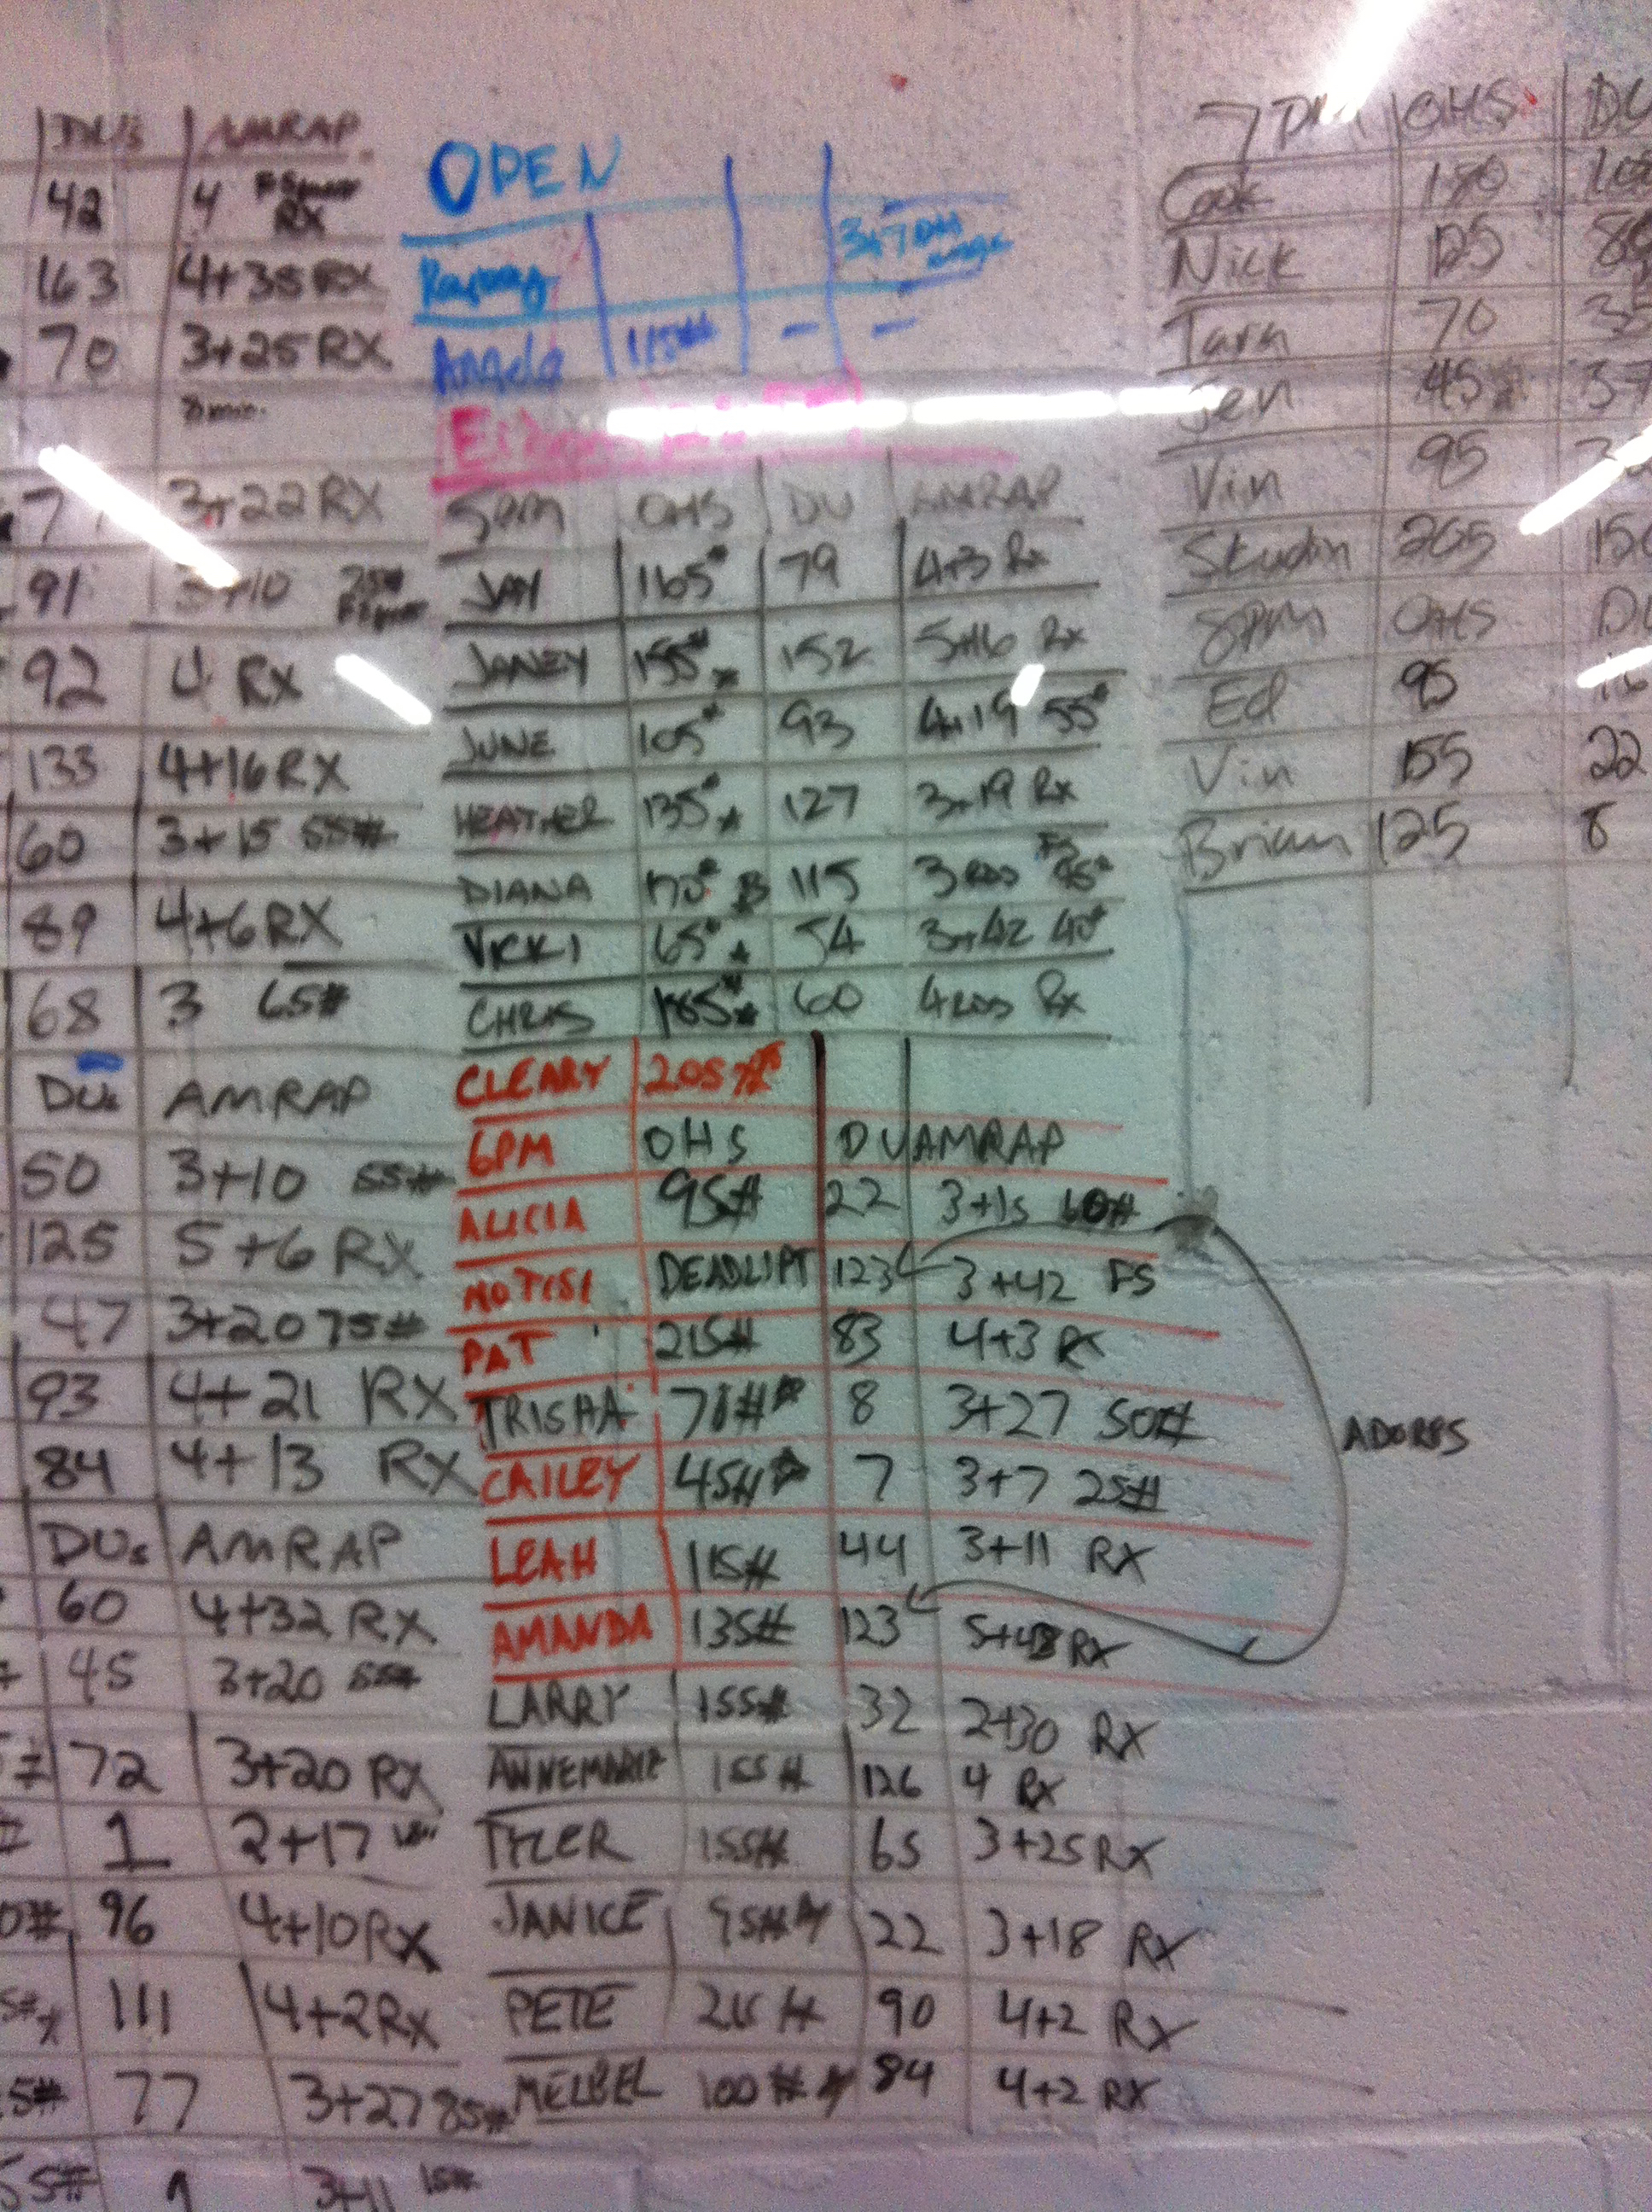 DU's AMRAP
42 4 RX
163 4+35 RX
70 3+25 RX
7 3+22 RX
91 3+10 75#
92 4 RX
133 4+16 RX
60 3+15 55#
89 4+6 RX
68 3 65#
DUs AMRAP
50 3+10 55#
125 5+6 RX
47 3+20 75#
93 4+21 RX
84 4+13 RX
DUs AMRAP
60 4+32 RX
45 3+20 55#
72 3+20 RX
1 2+17
96 4+10 RX
111 4+2 Rx
5# 77 3+27 85#
55# 1 3+11 15#
OPEN
Angela 115# - -
5pm OHS DU AMRAP
JAY 165# 79 4+3 Rx
JANEY 155# 152 5+16 Rx
JUNE 105# 93 4+19 55#
HEATHER 135# 127 3+19 Rx
DIANA 115 3 RDS FS
VICKI 65# 54 3+42 40#
CHRIS 185# 60 4 RDS Rx
CLEARY 205#
6PM OHS DU AMRAP
ALICIA 95# 22 3+15 60#
NOTISI DEADLIFT 123 3+42 FS
PAT 215# 83 4+3 RX
TRISHA 8 3+27 50#
CAILEY 45# 7 3+7 25#
LEAH 115# 44 3+11 RX
AMANDA 135# 123 RX
ADORBS
LARRY 155# 32 2+30 RX
ANNEMARIE 155# 126 4 RX
TYLER 155# 65 3+25 RX
JANICE 95# 22 3+18 RX
PETE 215# 90 4+2 RX
MELBEL 100# 84 4+2 RX
7PM OHS DU
Cook
Nick 125
Tara 70
Jen 45
Vin 95
Skudin 205
8PM OHS DU
Ed 95
Vin 155 22
Brian 125 8